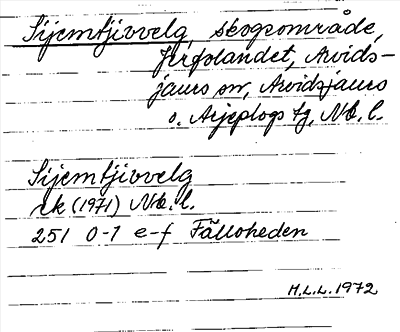 Sijemtjivvelg, skogsområde,
Jerfolandet, Arvids-
jaurs sn, Arvidsjaurs
o. Arjeplogs tg, Nb. l.
Sijemtjivvelg
rk (1971) Nb. l.
251 0-1 e-f Fälloheden
H.L.L. 1972